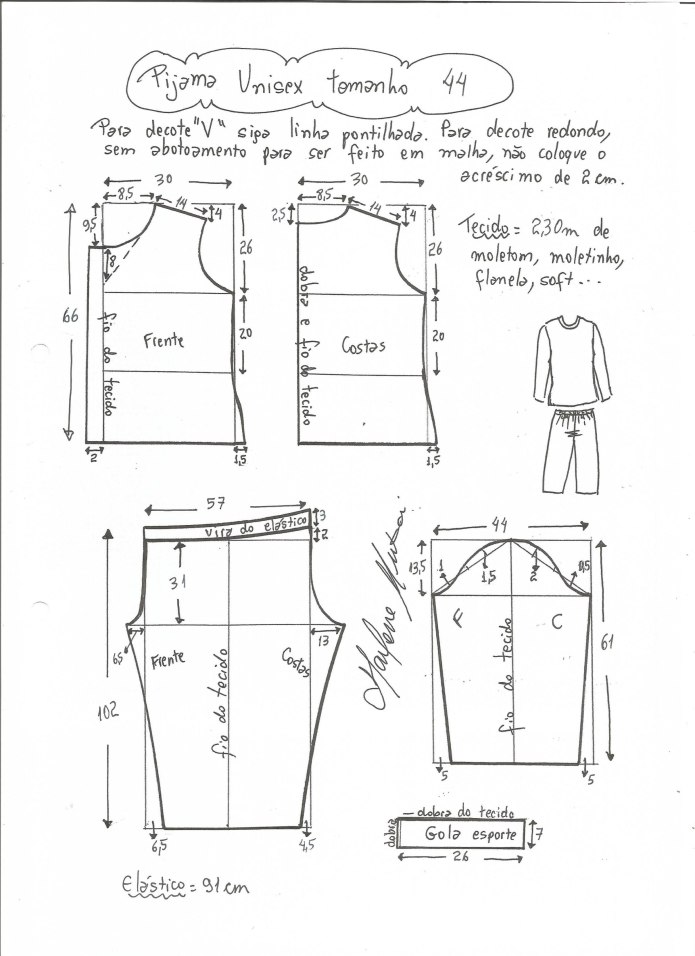 Pijama Unisex tamanho 44
Para decote "V" siga linha pontilhada. Para decote redondo,
sem abotoamento para ser feito em malha, não coloque o
acréscimo de 2 cm.
30
8,5
14
4
9,5
8
26
66
20
fio do tecido
Frente
2
1,5
30
8,5
14
4
2,5
26
20
dobra e fio do tecido
Costas
1,5
Tecido = 2,30m de
moletom, moletinho,
flanela, soft...
57
vira do elástico
3
2
31
6,5
13
Frente
Costas
fio do tecido
102
6,5
4,5
Elástico = 91 cm
44
13,5
1
1,5
2
0,5
F
C
fio do tecido
61
5
5
dobra do tecido
dobra
Gola esporte
7
26